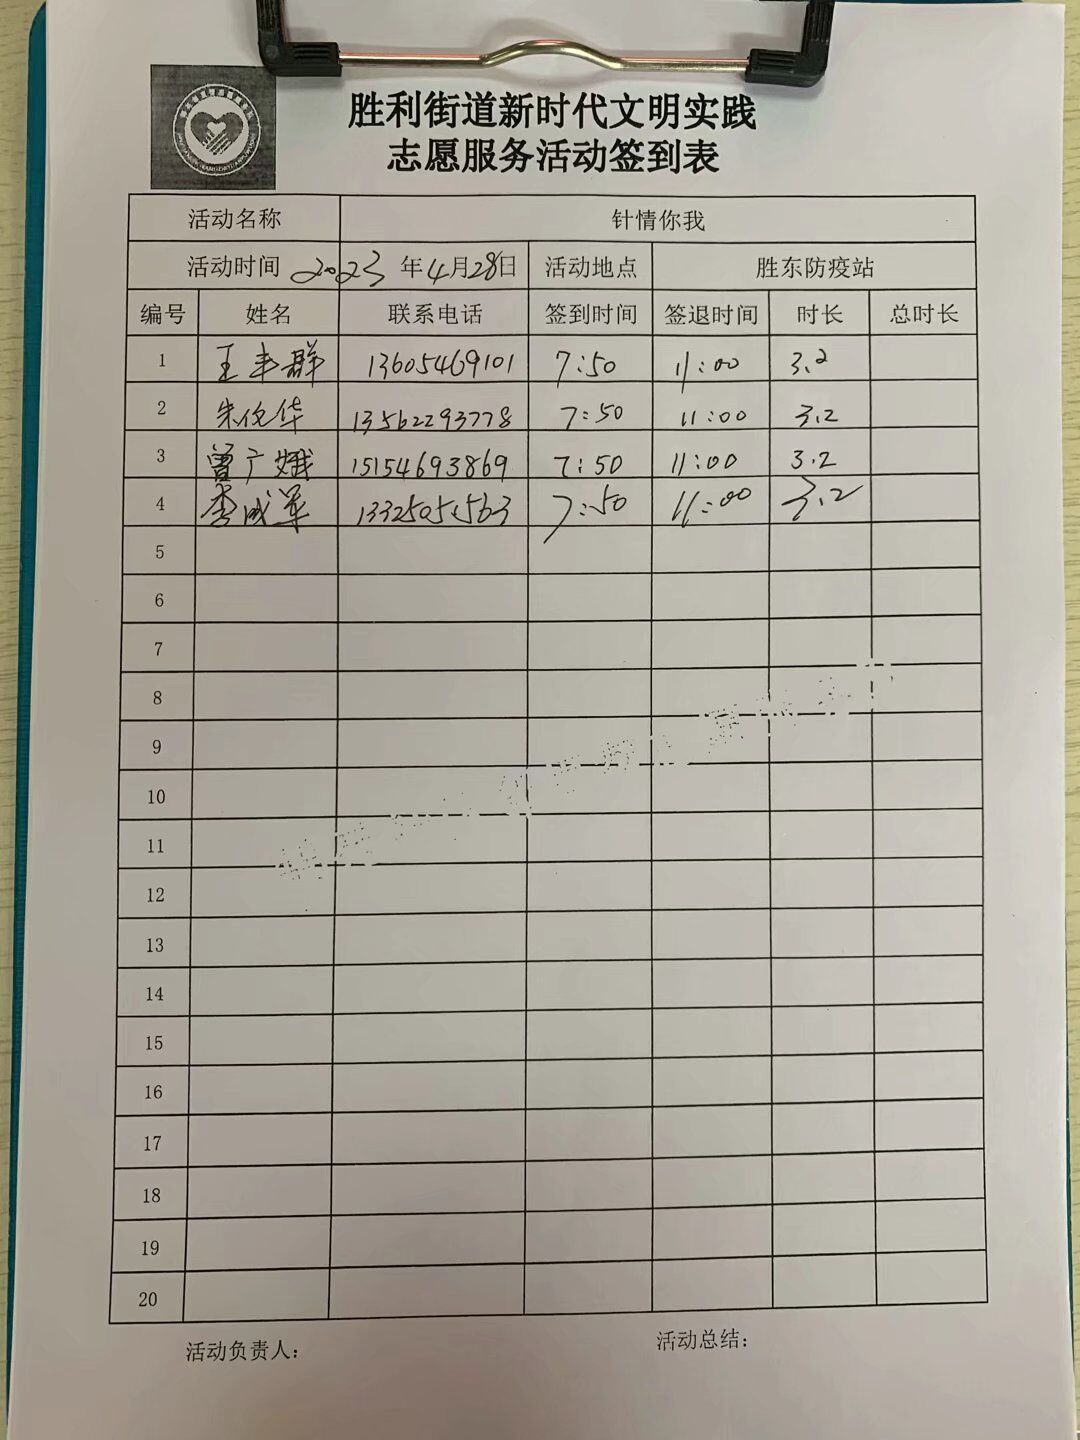 胜利街道新时代文明实践
志愿服务活动签到表
活动名称 针情你我
活动时间 2023年4月28日 活动地点 胜东防疫站
编号 姓名 联系电话 签到时间 签退时间 时长 总时长
1 王丰群 13605469101 7:50 11:00 3.2
2 朱俊华 13562293778 7:50 11:00 3.2
3 曾广娥 15154693869 7:50 11:00 3.2
4 李成军 7:50 11:00 3.2
5
6
7
8
9
10
11
12
13
14
15
16
17
18
19
20
活动负责人： 活动总结：